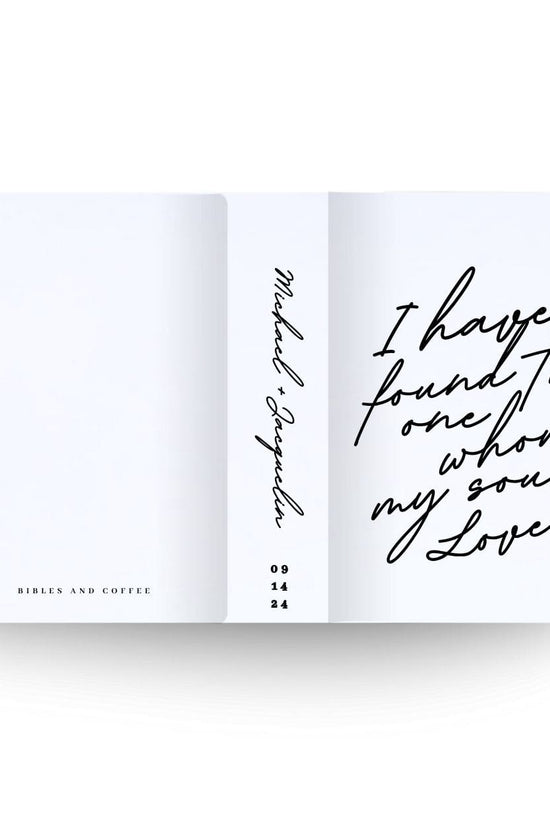 BIBLES AND COFFEE
Michael + Jacquelin
09
14
24
I have
found
one
my